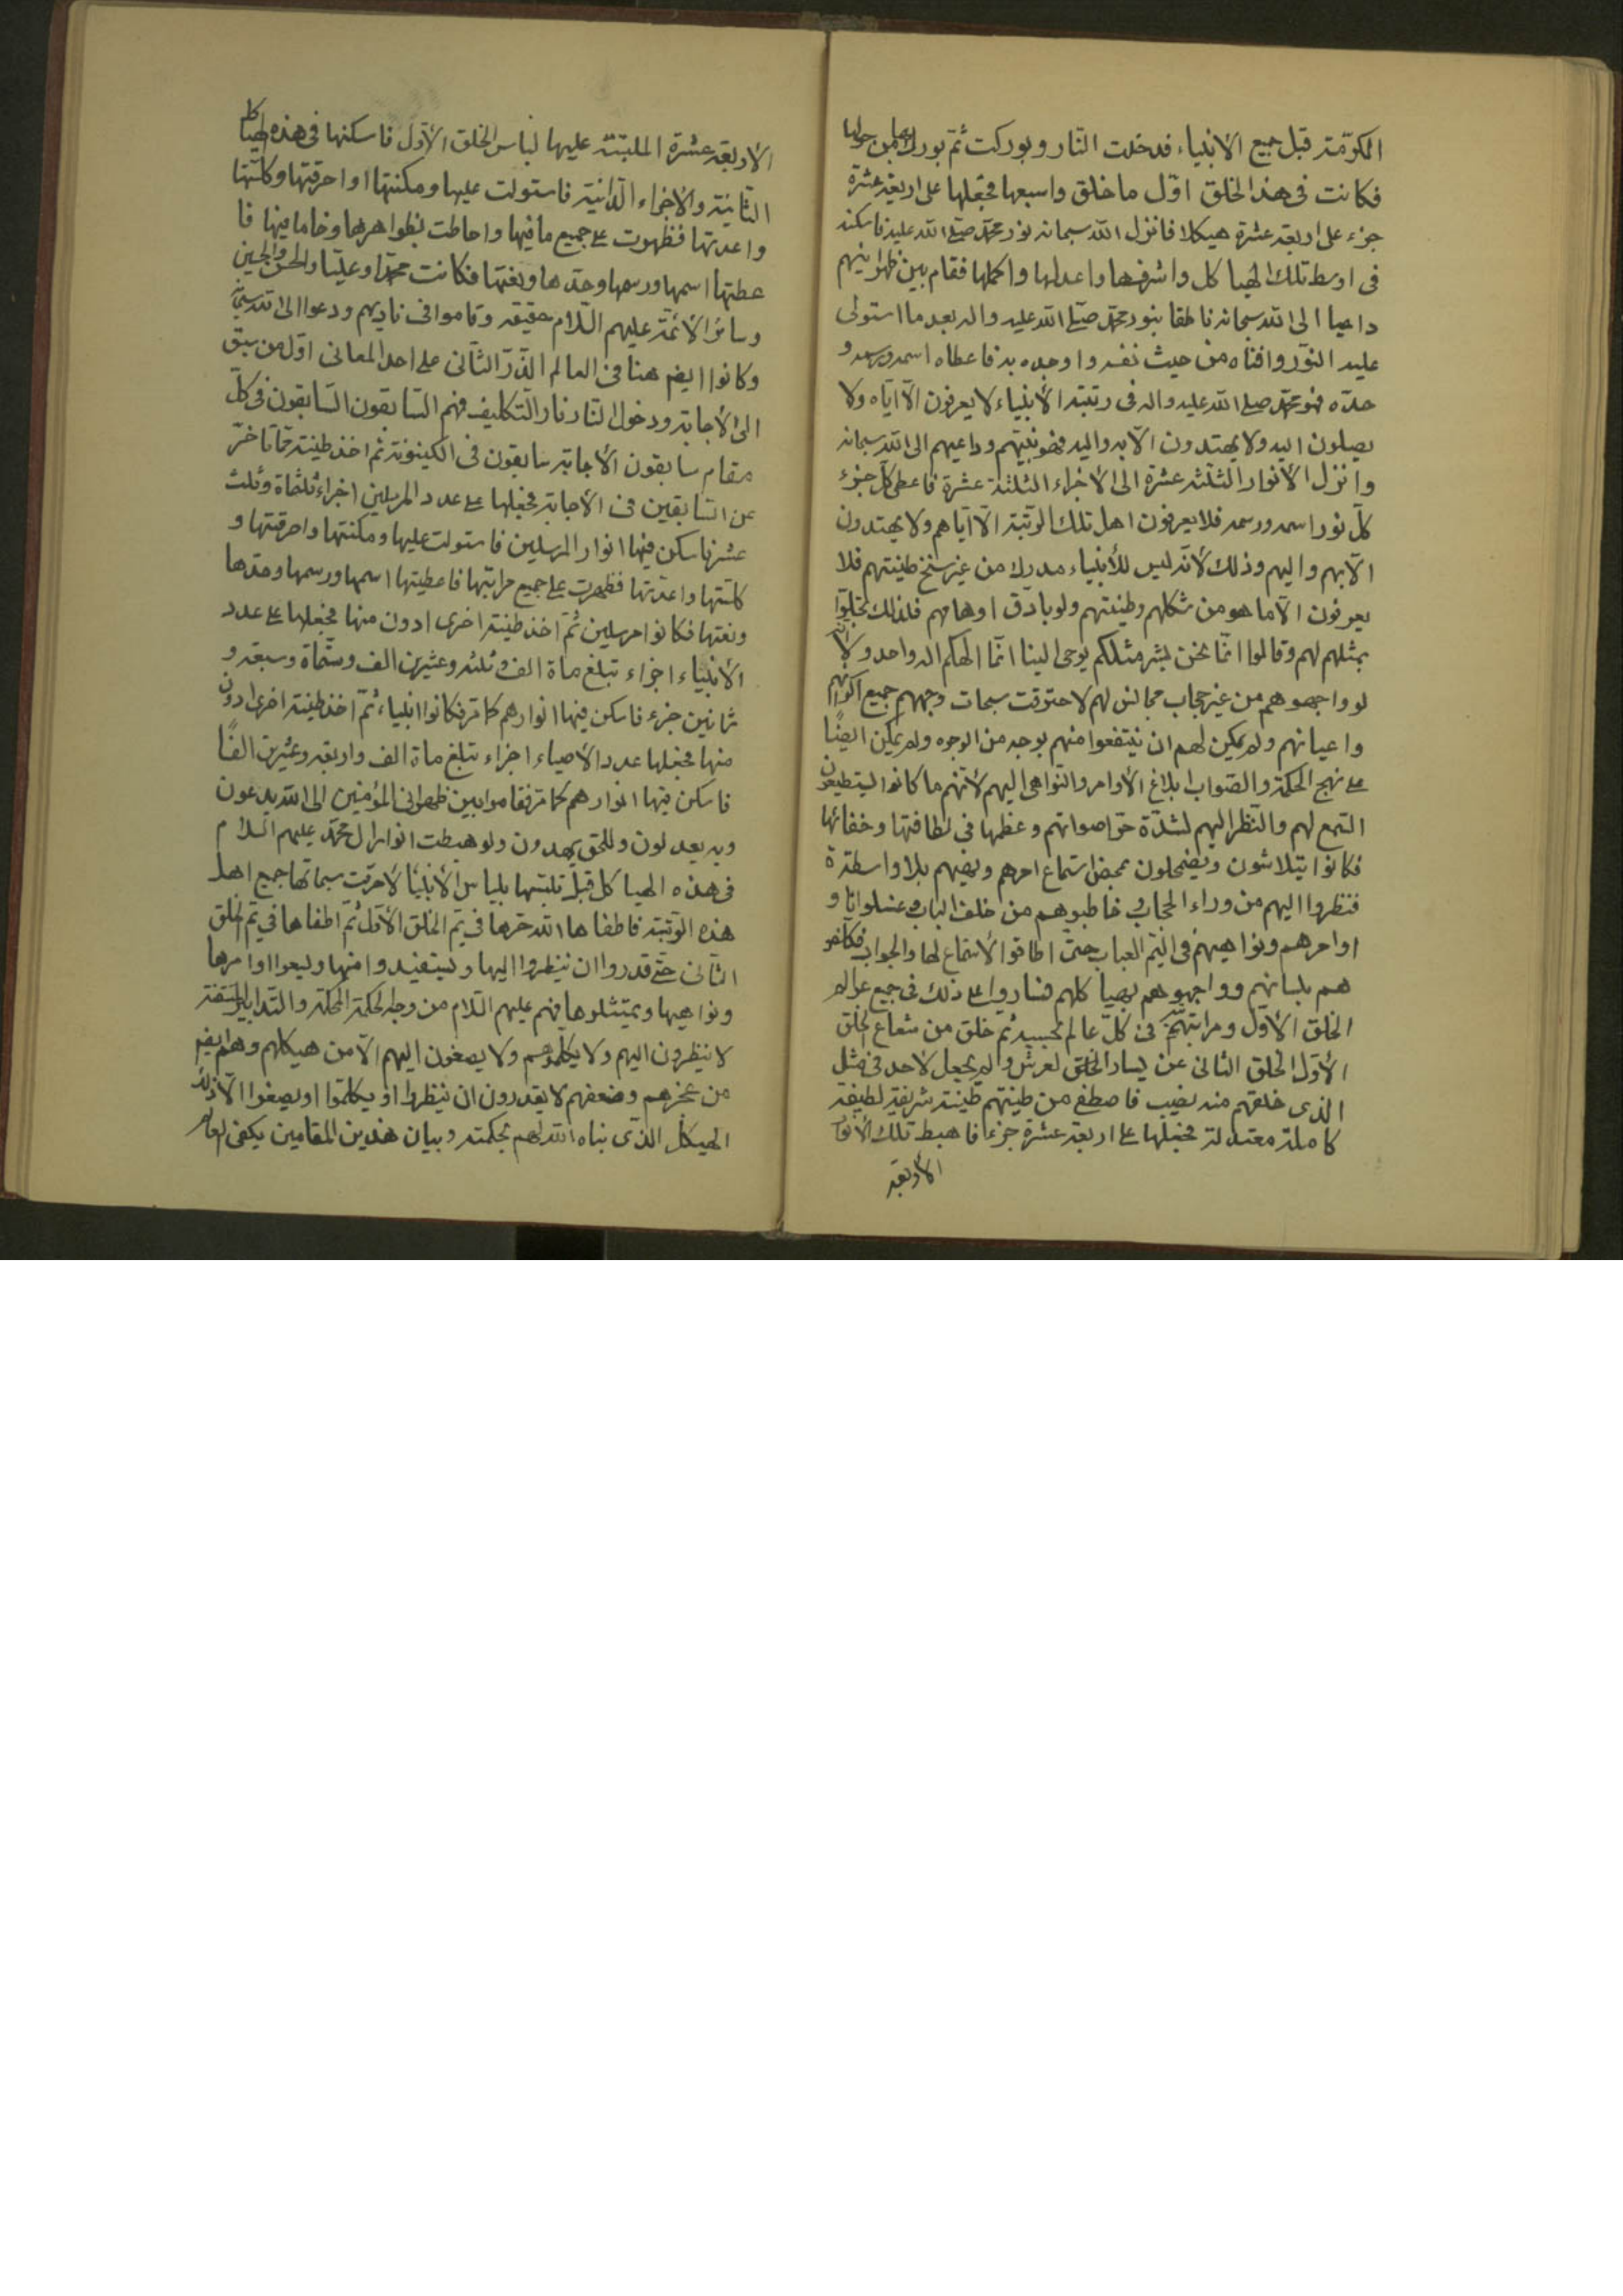 المكرّمة قبل جميع الانبياء فدخلت النار وبوركت ثم بورك بها من حولها
فكانت فى هذا الخلق اوّل ما خلق واسبعها فجعلها على اربعة عشرة
جزء على اربعة عشرة هيكلا فانزل الله سبحانه نور محمّد صلى الله عليه فاسكنه
فى اوسط تلك الهياكل واشرفها واعدلها واكملها فقام بين ظهرانيهم
داعيا الى الله سبحانه ناطقا بنور محمّد صلّى الله عليه واله بعد ما استولى
عليه النور وافناه من حيث نفسه واوجده به فاعطاه اسمه ورسمه و
حدّه فهو محمّد صلى الله عليه واله فى رتبة الأنبياء لا يعرفون الّا ايّاه ولا
يصلون اليه ولا يهتدون الّا به واليه فهو نبيّهم وداعيهم الى الله سبحانه
وانزل الأنوار الثلثة عشرة الى الأجزاء الثلثة عشرة فاعطى كلّ جزء
كلّ نور اسمه ورسمه فلا يعرفون اهل تلك الرتبة الّا ايّاهم ولا يهتدون
الّا بهم واليهم وذلك لأنّه ليس للأنبياء مدرك من غير سنخ طينتهم فلا
يعرفون الّا ما هو من شكلهم وطينتهم ولو بادقّ اوهامهم فلذلك تجلّوا
بمثلهم لهم وقالوا انّما نحن بشر مثلكم يوحى الينا انّما الهكم اله واحد ولانّهم
لو واجهوهم من غير حجاب مجانس لهم لاحترقت سبحات وجههم جميع اكوانهم
واعيانهم ولم يمكن لهم ان ينتفعوا منهم بوجه من الوجوه ولم يمكن ايضًا
على نهج الحكمة والصّواب ابلاغ الأوامر والنواهى اليهم لأنّهم ما كانوا ليستطيعون
السّمع لهم والنّظر اليهم لشدّة اصواتهم وعظمها فى لطافتها وخفائها
فكانوا يتلاشون ويضمحلون بمحض استماع امرهم ونهيهم بلا واسطة
فنظروا اليهم من وراء الحجاب وخاطبوهم من خلف الباب و
اوامرهم ونواهيهم فى اليمّ العباب حتّى اطاقوا الأستماع لها والجواب فكلّموهم
هم بلسانهم وواجهوهم بهياكلهم فساروا على ذلك فى جميع عوالم
الخلق الأوّل ومراتبهم فى كلّ عالم بحسبه ثم خلق من شعاع الخلق
الأوّل الخلق الثانى عن يسار الخلق لعرش ولم يجعل لأحد فى مثل
الذى خلقهم منه نصيب فاصطفى من طينتهم طينة شريفة لطيفة
كاملة معتدلة فجعلها على اربعة عشرة جزءا فاهبط تلك الأنوار
الأربعة
الأربعة عشرة الملبّسة عليها لباس الخلق الأوّل فاسكنها فى هذه الهياكل
الثانية والأجزاء الدّانية فاستولت عليها ومكنتها واحرقتها وكلّستها
واعدتها فظهرت على جميع ما فيها واحاطت بظواهرها وخافيها فا
عطتها اسمها ورسمها وحدّها ونعتها فكانت محمّدا وعليّا والحسن والحسين
وسائر الأئمّة عليهم السّلام حقيقة وقاموا فى ناديهم ودعوا الى الله سبحانه
وكانوا ايضا هنا فى العالم الذّرّ الثّانى على احد المعانى اوّل من سبق
الى الأجابة ودخول النار نار التكليف فهم السّابقون السّابقون فى كلّ
مقام سابقون الأجابة سابقون فى الكينونة ثم اخذ طينة ممّا تاخّر
عن السّابقين فى الأجابة فجعلها على عدد المرسلين اجزاء ثلثماة وثلث
عشر فاسكن فيها انوار المرسلين فاستولت عليها ومكنتها واحرقتها و
كلّستها واعدتها فظهرت على جميع مراتبها فاعطيتها اسمها ورسمها وحدّها
ونعتها فكانوا مرسلين ثمّ اخذ طينة اخرى ادون منها فجعلها على عدد
الأنبياء اجزاء تبلغ ماة الف وثلثة وعشرين الف وستّماة وسبعة و
ثمانين جزء فاسكن فيها انوارهم كما مرّ فكانوا انبياء ثمّ اخذ طينة اخرى ادون
منها فجعلها عدد الأوصياء اجزاء تبلغ ماة الف واربعة وعشرين الفًا
فاسكن فيها انوارهم كما مرّ فقاموا بين ظهرانى المؤمنين الى الله يدعون
وبه يعدلون وللحق يهدون ولو هبطت انوار ال محمّد عليهم السلام
فى هذه الهياكل قبل تلبّسها بلباس الأنبياء لأحرقت سبحاتها جميع اهل
هذه الرّتبة فاطفاها الله حرّها فى يمّ الخلق الأوّل ثمّ اطفاها فى يمّ الخلق
الثّانى حتّى قدروا ان ينظروا اليها ويستفيدوا منها ويسمعوا اوامرها
ونواهيها ويمتثلوها فهم عليهم السّلام من وجه الحكمة المحكمة والتّدابير المتقنة
لا ينظرون اليهم ولا يكلّموهم ولا يصغون اليهم الّا من هيكلهم وهم ايضا
من عجزهم وضعفهم لا يقدرون ان ينظروا او يكلّموا او يصغوا الّا ذلك
الهيكل الذّى بناه الله لهم بحكمته وبيان هذين المقامين يكفى لعالم